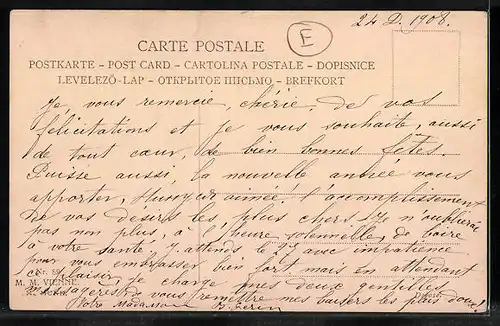 24 D. 1908.
E
CARTE POSTALE
POSTKARTE – POST CARD – CARTOLINA POSTALE – DOPISNICE
LEVELEZŐ-LAP – ОТКРЫТОЕ ПИСЬМО – BREFKORT
Je vous remercie, chérie, de vos
félicitations et je vous souhaite, aussi
de tout cœur, de bien bonnes fêtes.
Puisse aussi, la nouvelle année vous
apporter, aimée, l'accomplissement
de vos desirs les plus chers. Je n'oublierai
pas non plus, à l'heure solennelle, de boire
à votre santé. J'attends le 27 avec impatience
pour vous embrasser bien fort, mais en attendant
ce plaisir, je charge mes deux gentilles
messagères de vous remettre mes baisers les plus doux!
Votre
Nr.
M. M. VIENNE.